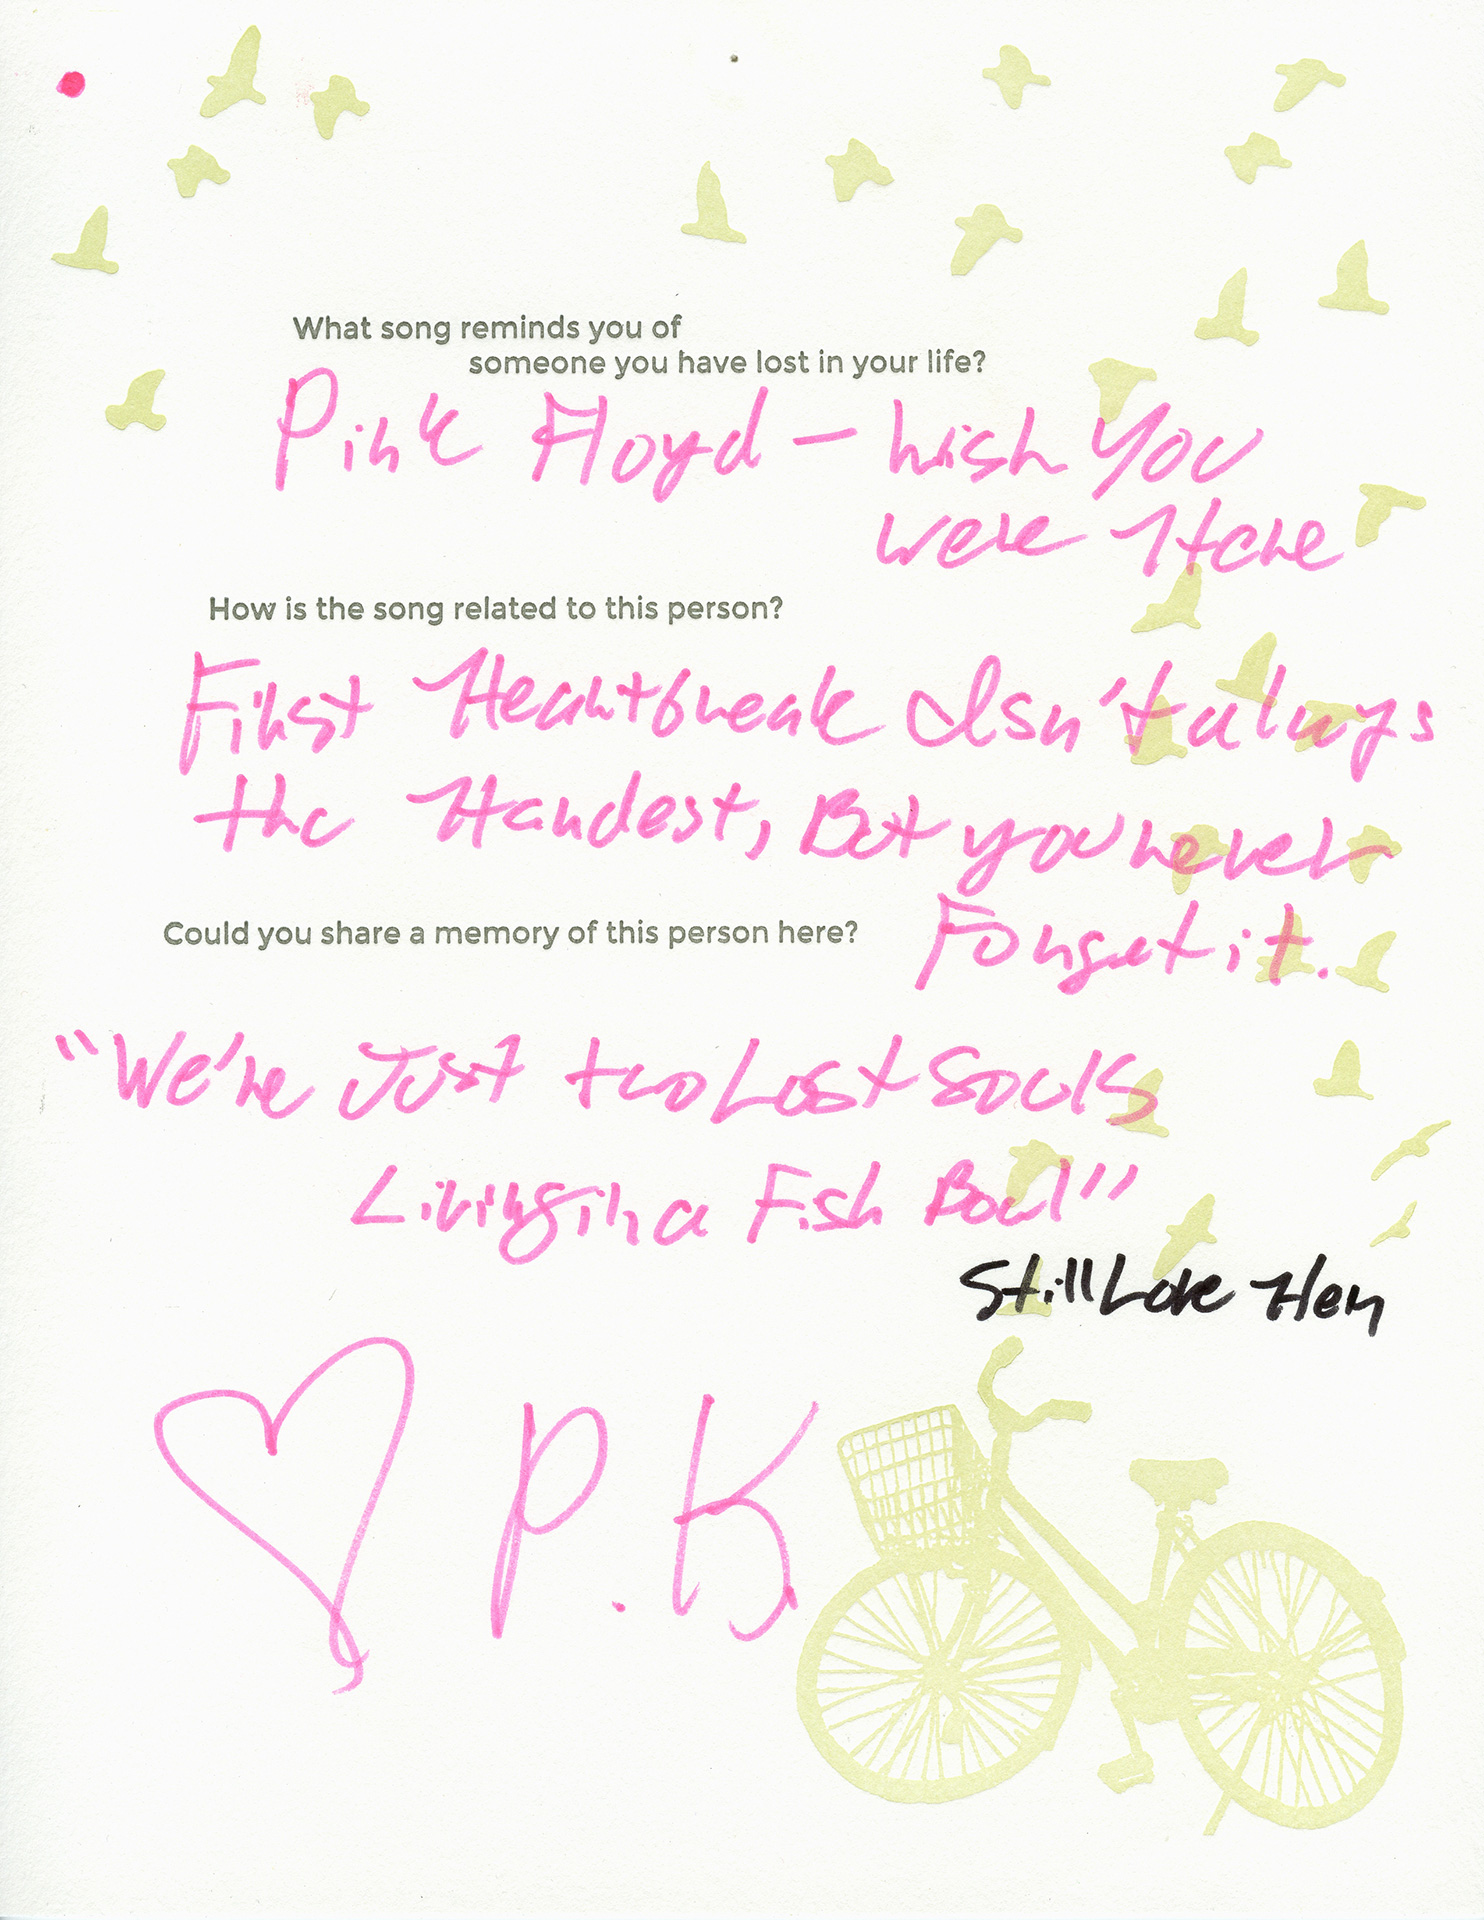 What song reminds you of
someone you have lost in your life?
Pink Floyd – Wish You
were Here
How is the song related to this person?
First Heartbreak Isn't always
the Hardest, But you never
Forget it.
Could you share a memory of this person here?
"We're Just two Lost Souls
Living in a Fish Bowl"
Still Love Her
P.K.